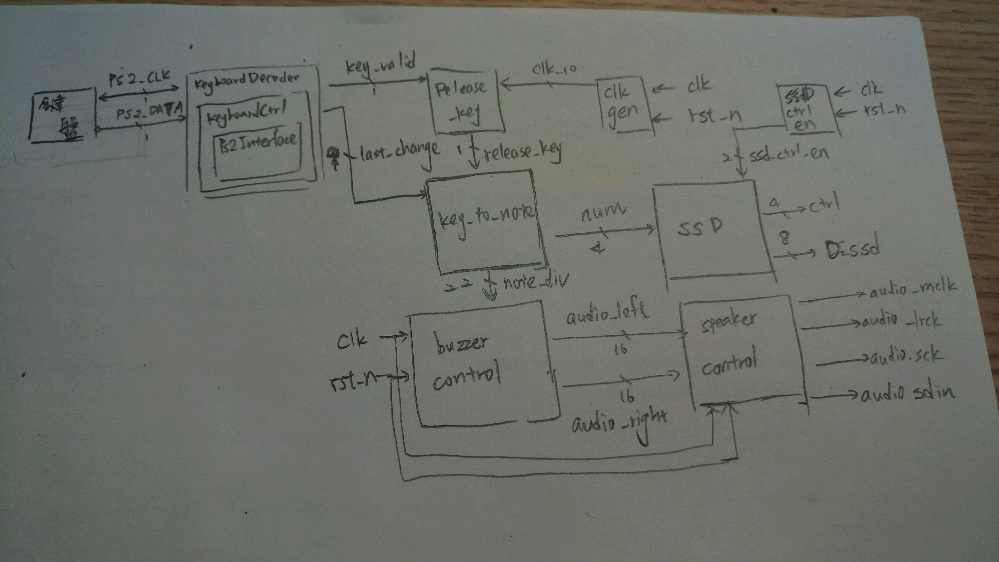 鍵
盤
PS2_CLK
1
PS2_DATA
1
KeyboardDecoder
KeyboardCtrl
Ps2Interface
key_valid
1
Release
_key
clk_10
clk
gen
clk
rst_n
SSD
ctrl
en
clk
rst_n
9
last_change
1
release_key
2
ssd_ctrl_en
key_to_note
num
4
SSD
4
ctrl
8
D_ssd
22
note_div
clk
rst_n
buzzer
control
audio_left
16
16
audio_right
speaker
control
audio_mclk
audio_lrck
audio_sck
audio_sdin